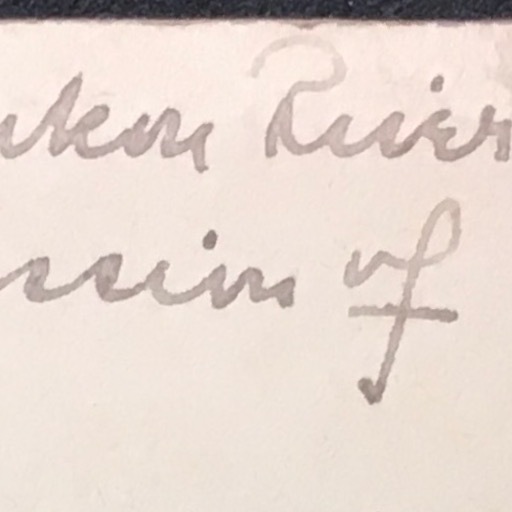 ukon River
ssion of